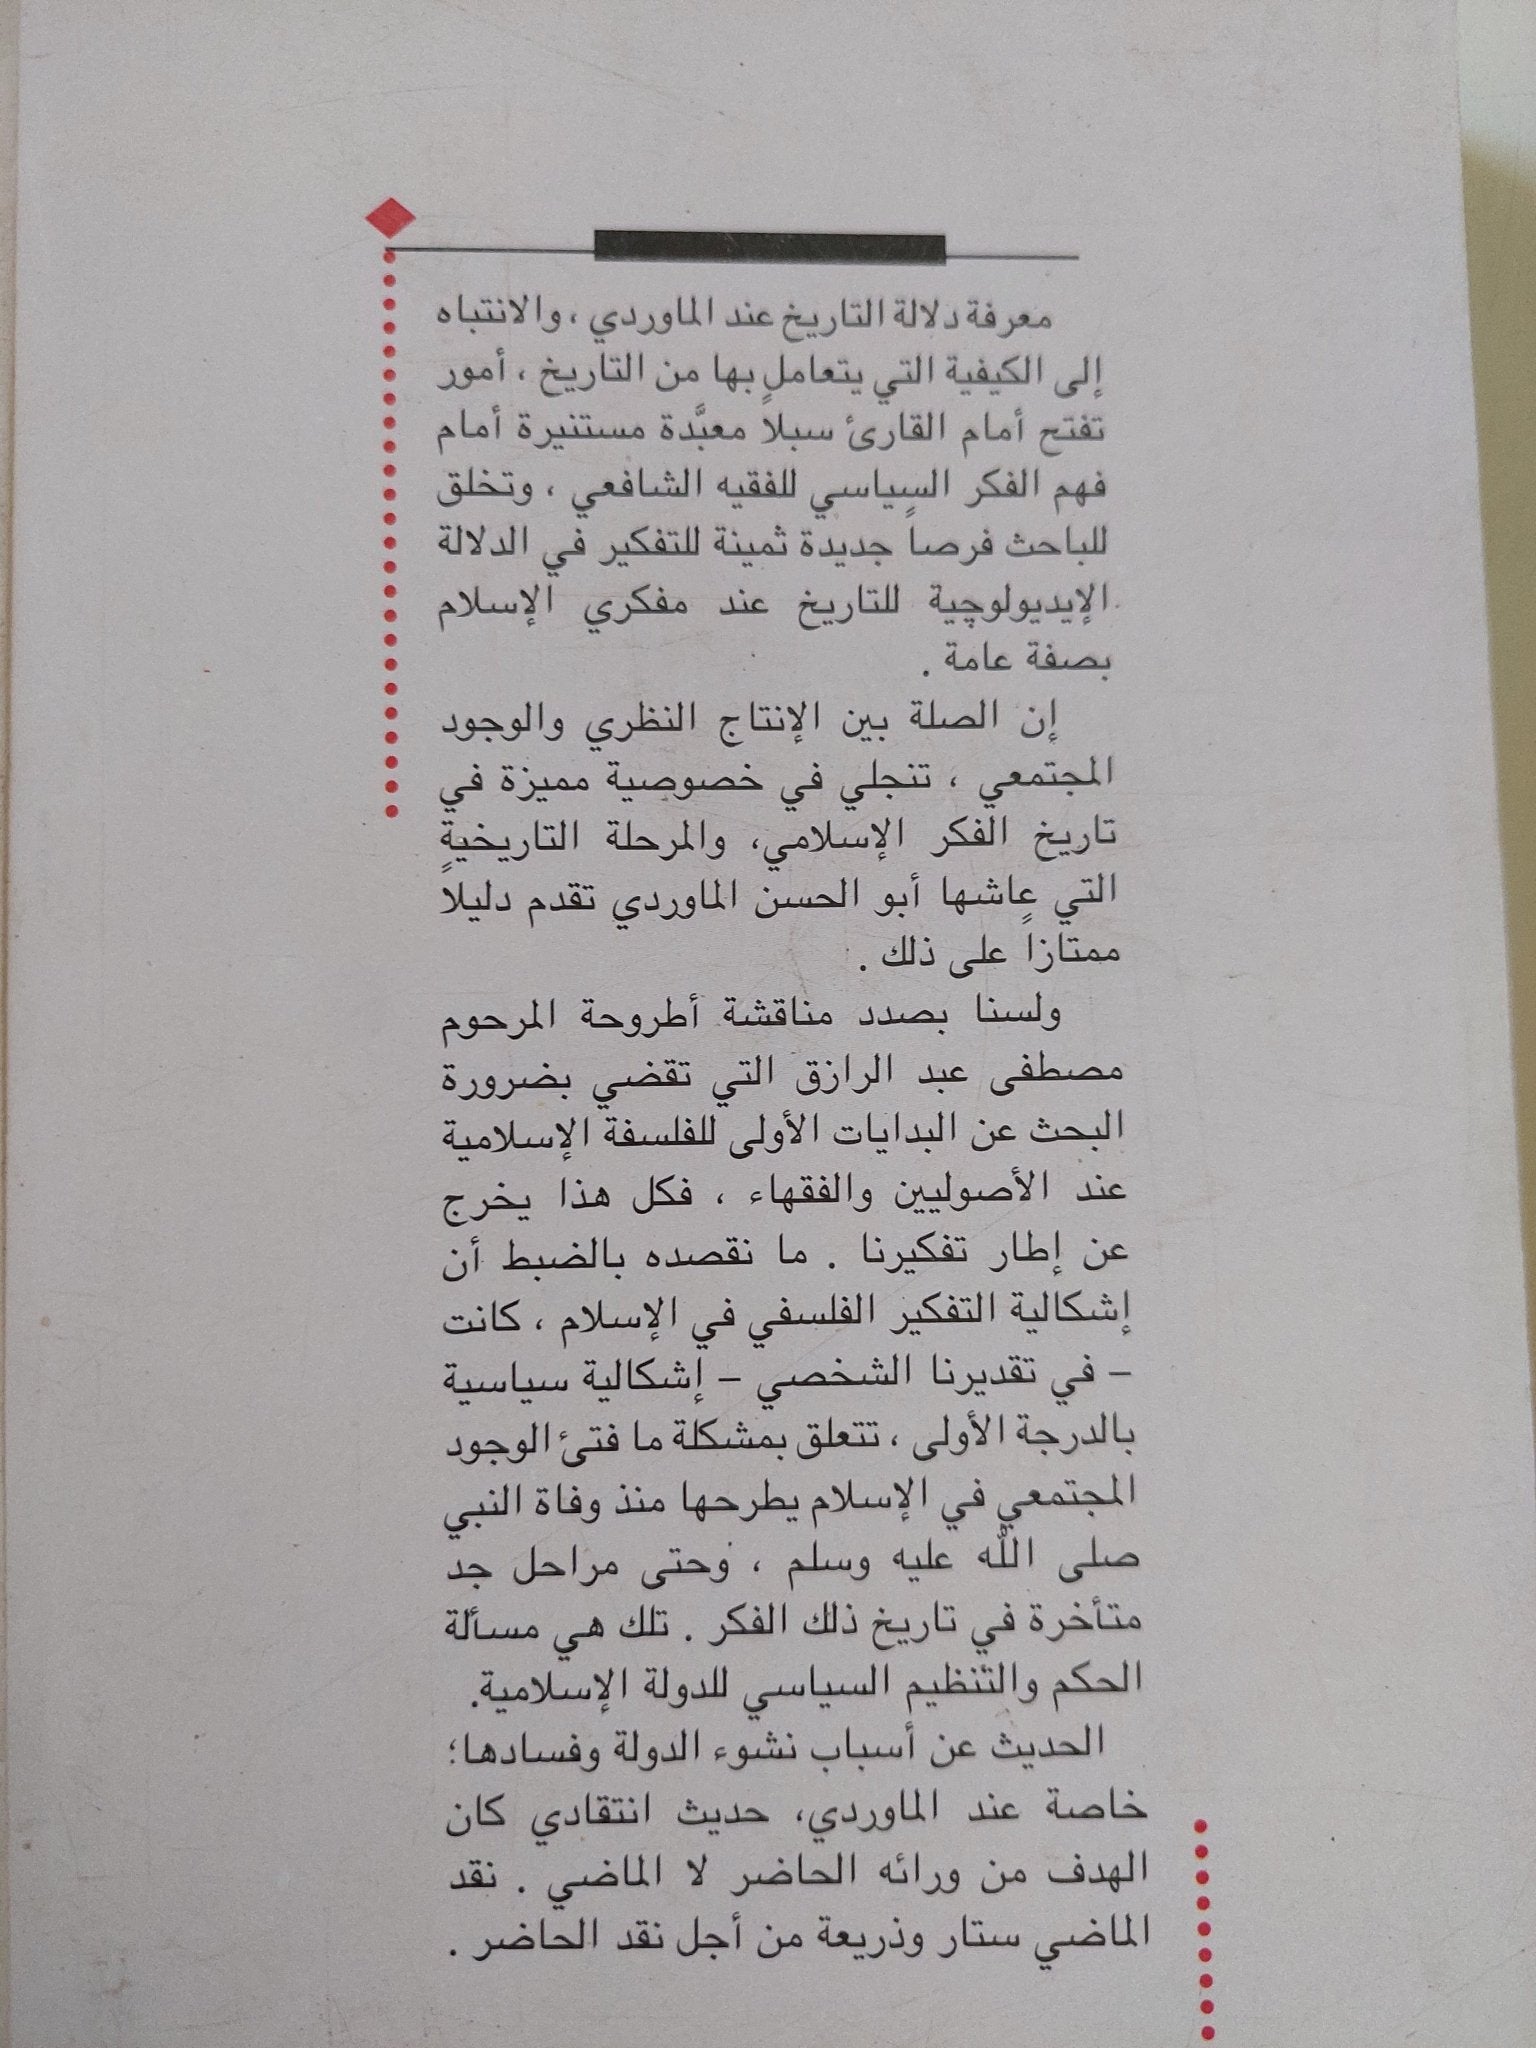 معرفة دلالة التاريخ عند الماوردي ، والانتباه
إلى الكيفية التي يتعامل بها من التاريخ ، أمور
تفتح أمام القارئ سبلاً معبَّدة مستنيرة أمام
فهم الفكر السياسي للفقيه الشافعي ، وتخلق
للباحث فرصاً جديدة ثمينة للتفكير في الدلالة
الإيديولوچية للتاريخ عند مفكري الإسلام
بصفة عامة .
إن الصلة بين الإنتاج النظري والوجود
المجتمعي ، تنجلي في خصوصية مميزة في
تاريخ الفكر الإسلامي، والمرحلة التاريخية
التي عاشها أبو الحسن الماوردي تقدم دليلاً
ممتازاً على ذلك .
ولسنا بصدد مناقشة أطروحة المرحوم
مصطفى عبد الرازق التي تقضي بضرورة
البحث عن البدايات الأولى للفلسفة الإسلامية
عند الأصوليين والفقهاء ، فكل هذا يخرج
عن إطار تفكيرنا . ما نقصده بالضبط أن
إشكالية التفكير الفلسفي في الإسلام ، كانت
– في تقديرنا الشخصي – إشكالية سياسية
بالدرجة الأولى ، تتعلق بمشكلة ما فتئ الوجود
المجتمعي في الإسلام يطرحها منذ وفاة النبي
صلى الله عليه وسلم ، وحتى مراحل جد
متأخرة في تاريخ ذلك الفكر . تلك هي مسألة
الحكم والتنظيم السياسي للدولة الإسلامية.
الحديث عن أسباب نشوء الدولة وفسادها؛
خاصة عند الماوردي، حديث انتقادي كان
الهدف من ورائه الحاضر لا الماضي . نقد
الماضي ستار وذريعة من أجل نقد الحاضر .